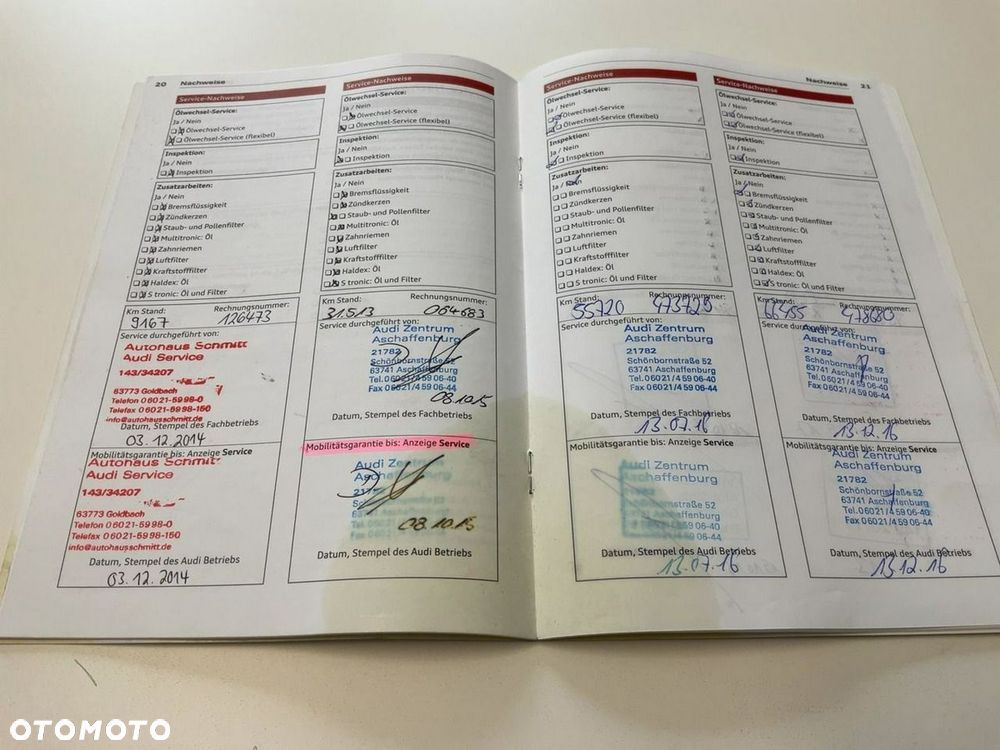 20 Nachweise
Service-Nachweise
Ölwechsel-Service:
Ja / Nein
Ölwechsel-Service
Ölwechsel-Service (flexibel)
Inspektion:
Ja / Nein
Inspektion
Zusatzarbeiten:
Ja / Nein
Bremsflüssigkeit
Zündkerzen
Staub- und Pollenfilter
Multitronic: Öl
Zahnriemen
Luftfilter
Kraftstofffilter
Haldex: Öl
S tronic: Öl und Filter
Km Stand: Rechnungsnummer:
9167 126473
Service durchgeführt von:
Autohaus Schmitt
Audi Service
143/34207
63773 Goldbach
Telefon 06021-5998-0
Telefax 06021-5998-150
info@autohausschmitt.de
Datum, Stempel des Fachbetriebs
03.12.2014
Mobilitätsgarantie bis: Anzeige Service
Autohaus Schmitt
Audi Service
143/34207
63773 Goldbach
Telefon 06021-5998-0
Telefax 06021-5998-150
info@autohausschmitt.de
Datum, Stempel des Audi Betriebs
03.12.2014
Service-Nachweise
Ölwechsel-Service:
Ja / Nein
Ölwechsel-Service
Ölwechsel-Service (flexibel)
Inspektion:
Ja / Nein
Inspektion
Zusatzarbeiten:
Ja / Nein
Bremsflüssigkeit
Zündkerzen
Staub- und Pollenfilter
Multitronic: Öl
Zahnriemen
Luftfilter
Kraftstofffilter
Haldex: Öl
S tronic: Öl und Filter
Km Stand: Rechnungsnummer:
31.513 064683
Service durchgeführt von:
Audi Zentrum
Aschaffenburg
21782
Schönbornstraße 52
63741 Aschaffenburg
Tel. 06021/4 59 06-40
Fax 06021/4 59 06-44
08.10.15
Datum, Stempel des Fachbetriebs
Mobilitätsgarantie bis: Anzeige Service
Audi Zentrum
Aschaffenburg
08.10.15
Datum, Stempel des Audi Betriebs
Nachweise 21
Service-Nachweise
Ölwechsel-Service:
Ja / Nein
Ölwechsel-Service
Ölwechsel-Service (flexibel)
Inspektion:
Ja / Nein
Inspektion
Zusatzarbeiten:
Ja / Nein
Bremsflüssigkeit
Zündkerzen
Staub- und Pollenfilter
Multitronic: Öl
Zahnriemen
Luftfilter
Kraftstofffilter
Haldex: Öl
S tronic: Öl und Filter
Km Stand: Rechnungsnummer:
55720
Service durchgeführt von:
Audi Zentrum
Aschaffenburg
21782
Schönbornstraße 52
63741 Aschaffenburg
Tel. 06021/4 59 06-40
Fax 06021/4 59 06-44
Datum, Stempel des Fachbetriebs
13.07.16
Mobilitätsgarantie bis: Anzeige Service
Audi Zentrum
Aschaffenburg
Schönbornstraße 52
63741 Aschaffenburg
Tel. 06021/4 59 06-40
Fax 06021/4 59 06-44
Datum, Stempel des Audi Betriebs
13.07.16
Service-Nachweise
Ölwechsel-Service:
Ja / Nein
Ölwechsel-Service
Ölwechsel-Service (flexibel)
Inspektion:
Ja / Nein
Inspektion
Zusatzarbeiten:
Ja / Nein
Bremsflüssigkeit
Zündkerzen
Staub- und Pollenfilter
Multitronic: Öl
Zahnriemen
Luftfilter
Kraftstofffilter
Haldex: Öl
S tronic: Öl und Filter
Km Stand: Rechnungsnummer:
Service durchgeführt von:
Audi Zentrum
Aschaffenburg
21782
Schönbornstraße 52
63741 Aschaffenburg
Tel. 06021/4 59 06-40
Fax 06021/4 59 06-44
Datum, Stempel des Fachbetriebs
13.12.16
Mobilitätsgarantie bis: Anzeige Service
Audi Zentrum
Aschaffenburg
21782
Schönbornstraße 52
63741 Aschaffenburg
Tel. 06021/4 59 06-40
Fax 06021/4 59 06-44
Datum, Stempel des Audi Betriebs
13.12.16
OTOMOTO